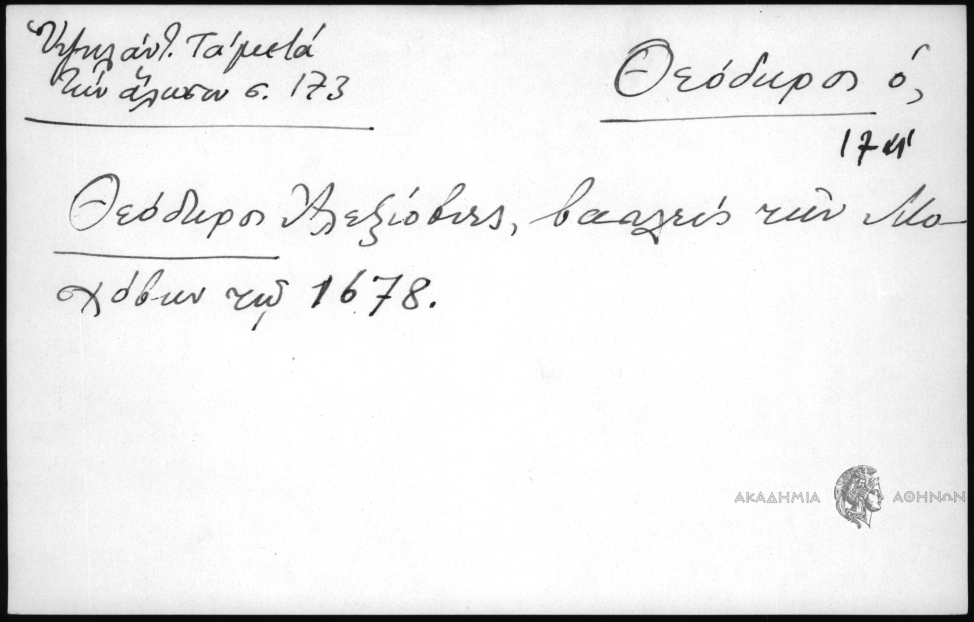 Ὑψηλάντ. Τὰ μετὰ
τὴν ἅλωσιν σ. 173
Θεόδωρος ὁ,
17 αι
Θεόδωρος Ἀλεξιόβιτς, βασιλεὺς τῶν Μο-
σχόβων τῷ 1678.
ΑΚΑΔΗΜΙΑ ΑΘΗΝΩΝ